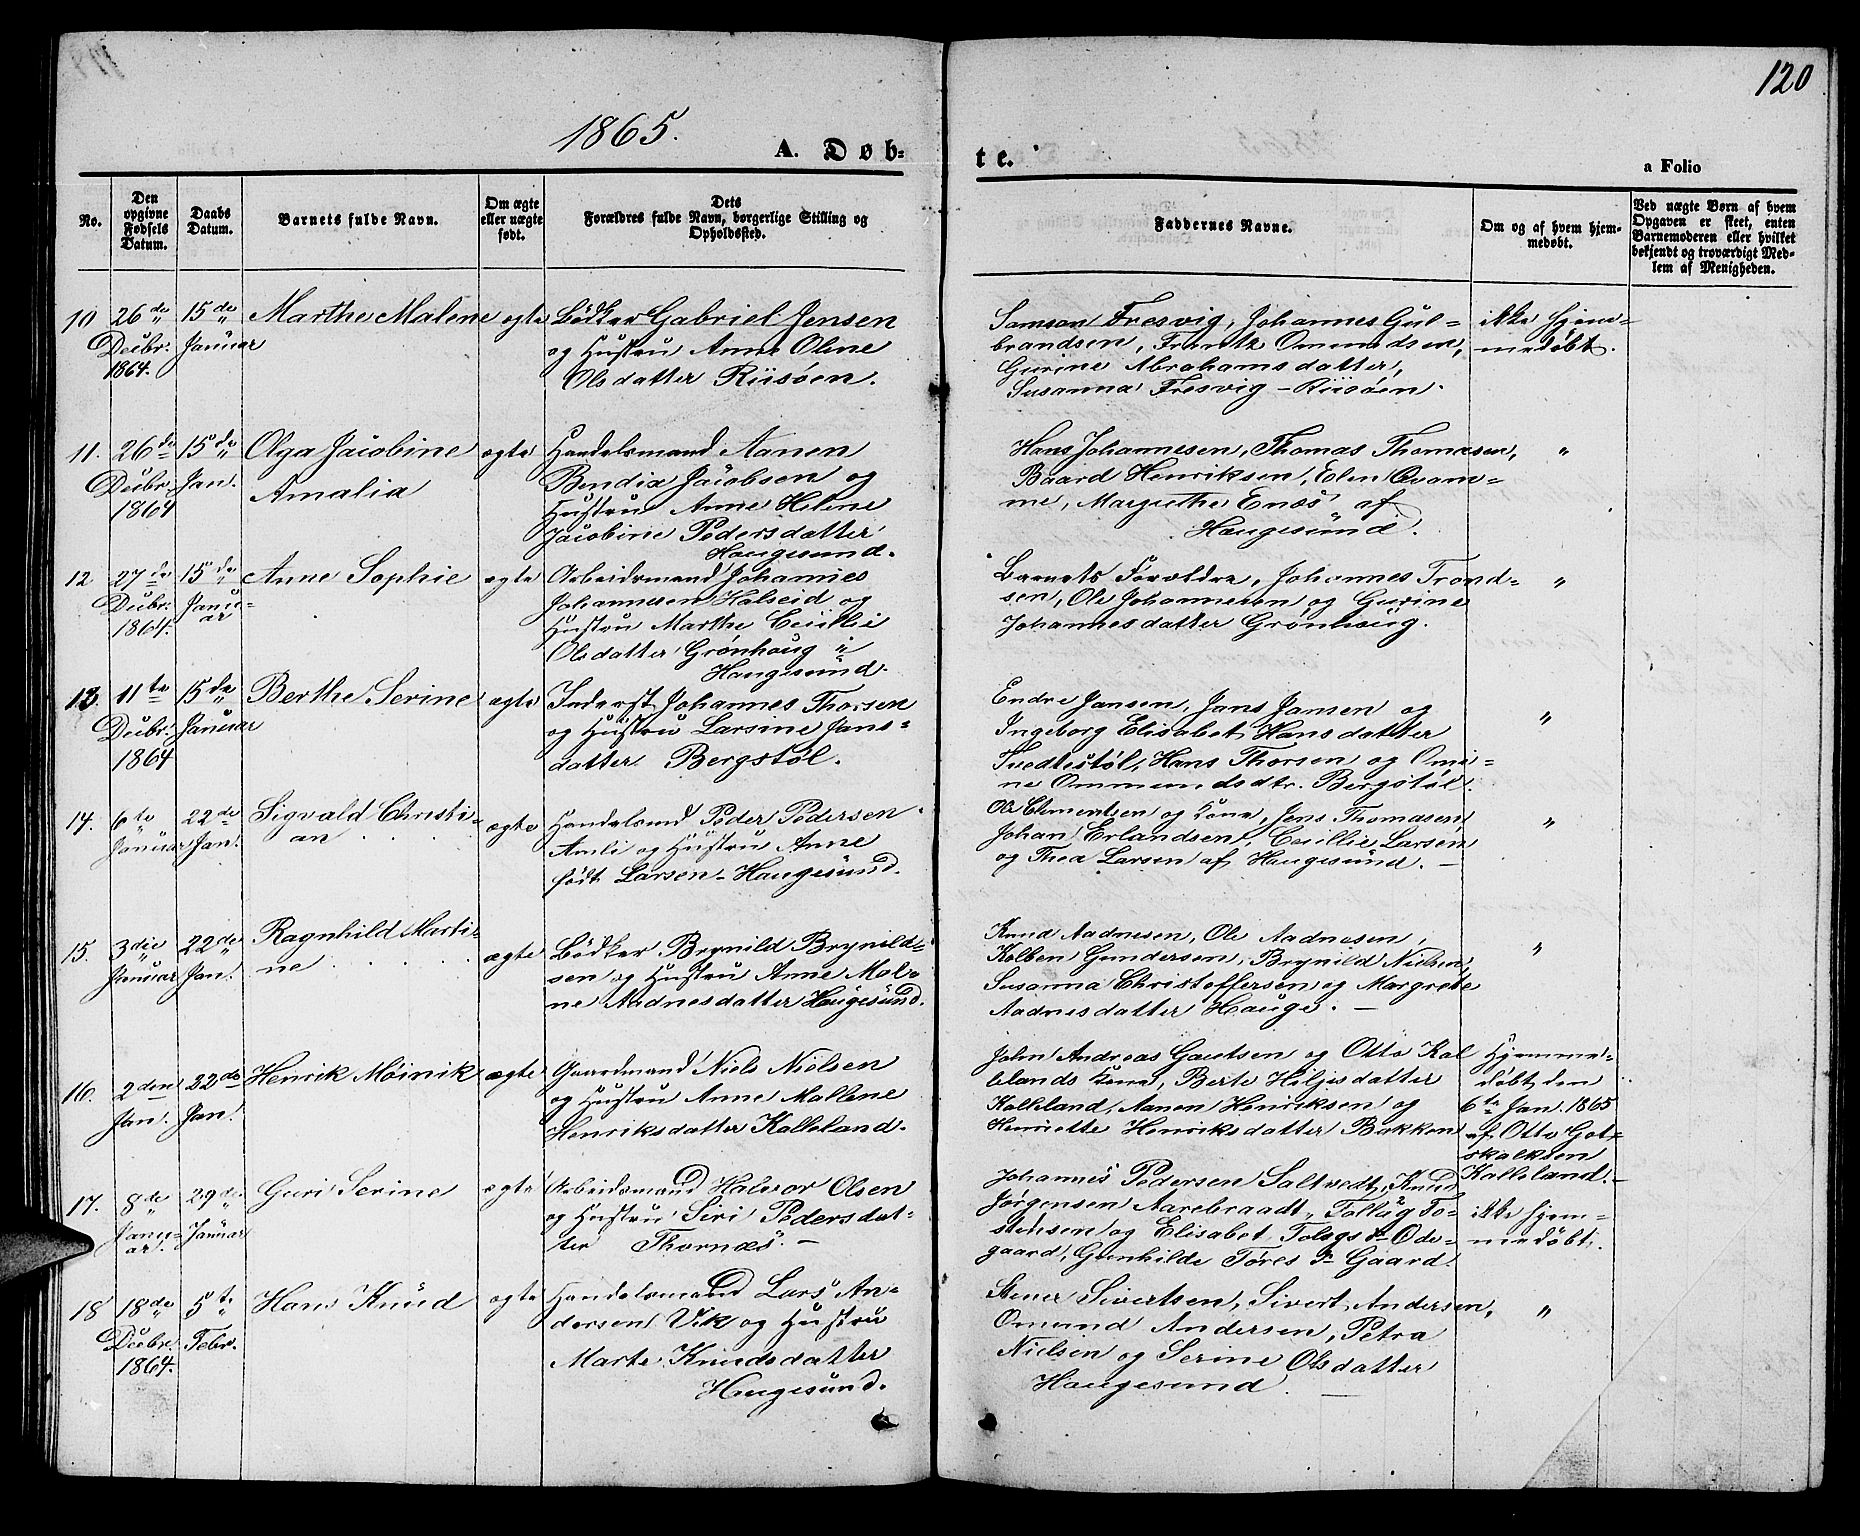 120
1865.
A. Døb-
te.
a Folio
No.
Den
opgivne
Fødsels
Datum.
Daabs
Datum.
Barnets fulde Navn.
Om ægte
eller uægte
født.
Dets
Forældres fulde Navn, borgerlige Stilling og
Opholdssted.
Faddernes Navne.
Om og af hvem hjem-
medøbt.
Ved uægte Børn af hvem
Opgaven er skeet, enten
Barnemoderen eller hvilket
bekjendt og troværdigt Med-
lem af Menigheden.
10
26de
Decbr.
1864.
15de
Januar
Marthe Malene
ægte
Bødker Gabriel Jensen
og Hustru Anne Oline
Olsdatter Riisøen.
Samson Fresvig, Johannes Gul-
brandsen, Frantz Ommundsen,
Gurine Abrahamsdatter,
Susanna Fresvig - Riisøen.
ikke hjem-
medøbt.
11.
26de
Decbr.
1864
15de
Jan.
Olga Jacobine
Amalia
ægte
Handelsmand Aanen
Bendix Jacobsen og
Hustru Anne Helene
Jacobine Pedersdatter
Haugesund.
Hans Johannesen, Thomas Thomasen,
Baard Henriksen, Elen Qvam-
me, Margrethe Enæs af
Haugesund.
"
12
27de
Decbr.
1864.
15de
Janu-
ar
Anne Sophie
ægte
Arbeidsmand Johannes
Johannesen Halseid og
Hustru Marthe Cecilie
Olsdatter Grønhaug i
Haugesund.
Barnets Forældre, Johannes Trond-
sen, Ole Johannesen og Gurine
Johannesdatter Grønhaug.
"
13
11te
Decbr.
1864
15de
Januar
Berthe Serine
ægte
Inderst Johannes Thorsen
og Hustru Larsine Jans-
datter Bergstøl.
Endre Jansen, Jans Jansen og
Ingeborg Elisabet Hansdatter
Tvedtestøl, Hans Thorsen og Omi-
ne Ommundsdtr. Bergstøl.
"
14.
6te
Januar
22de
Jan.
Sigvald Christi-
an
ægte
Handelsmd Peder Pedersen
Amli og Hustru Anne
født Larsen - Haugesund.
Ole Clementsen og Kone, Jens Thomasen,
Johan Erlandsen, Cecillie Larsen
og Thea Larsen af Haugesund. -
"
15.
3die
Januar
22de
Jan.
Ragnhild Marti-
ne
ægte
Bødker Brynild Brynild-
sen og Hustru Anne Mal-
ne Aadnesdatter Haugesund.
Knud Aadnesen, Ole Aadnesen,
Kolben Gundersen, Brynild Nielsen,
Susanna Christoffersen og Margrete
Aadnesdatter Hauge. -
"
16.
2den
Jan.
22de
Jan.
Henrik Møinik
ægte
Gaardmand Niels Nielsen
og Hustru Anne Mallene
Henriksdatter Kalleland.
John Andreas Gautsen og Otto Kal
lelands Kone, Berte Hiljesdatter
Kalleland, Aanen Henriksen og
Henriette Henriksdatter Bakken
Hjemme-
døbt den
6te Jan. 1865
af Otto Got-
skalksen
Kalleland. -
17.
8de
Janu-
ar.
29de
Januar
Guri Serine
ægte
Arbeidsmand Halvor Olsen
og Hustru Siri Pedersdat-
ter Thornæs. -
Johannes Pedersen Saltvedt, Knud
Jørgensen Aarebraadt, Tollag To-
stensen og Elisabet Tolagsdr Øde-
gaard, Gunhilde Tøresdr Gaard.
ikke hjem-
medøbt.
18
18de
Decbr.
1864.
5te
Febr.
Hans Knud
ægte
Handelsmand Lars An-
dersen Vik og Hustru
Marte Knudsdatter
Haugesund.
Stener Sivertsen, Sivert Andersen,
Omund Andersen, Petra
Nielsen og Serine Olsdatter
Haugesund.
"